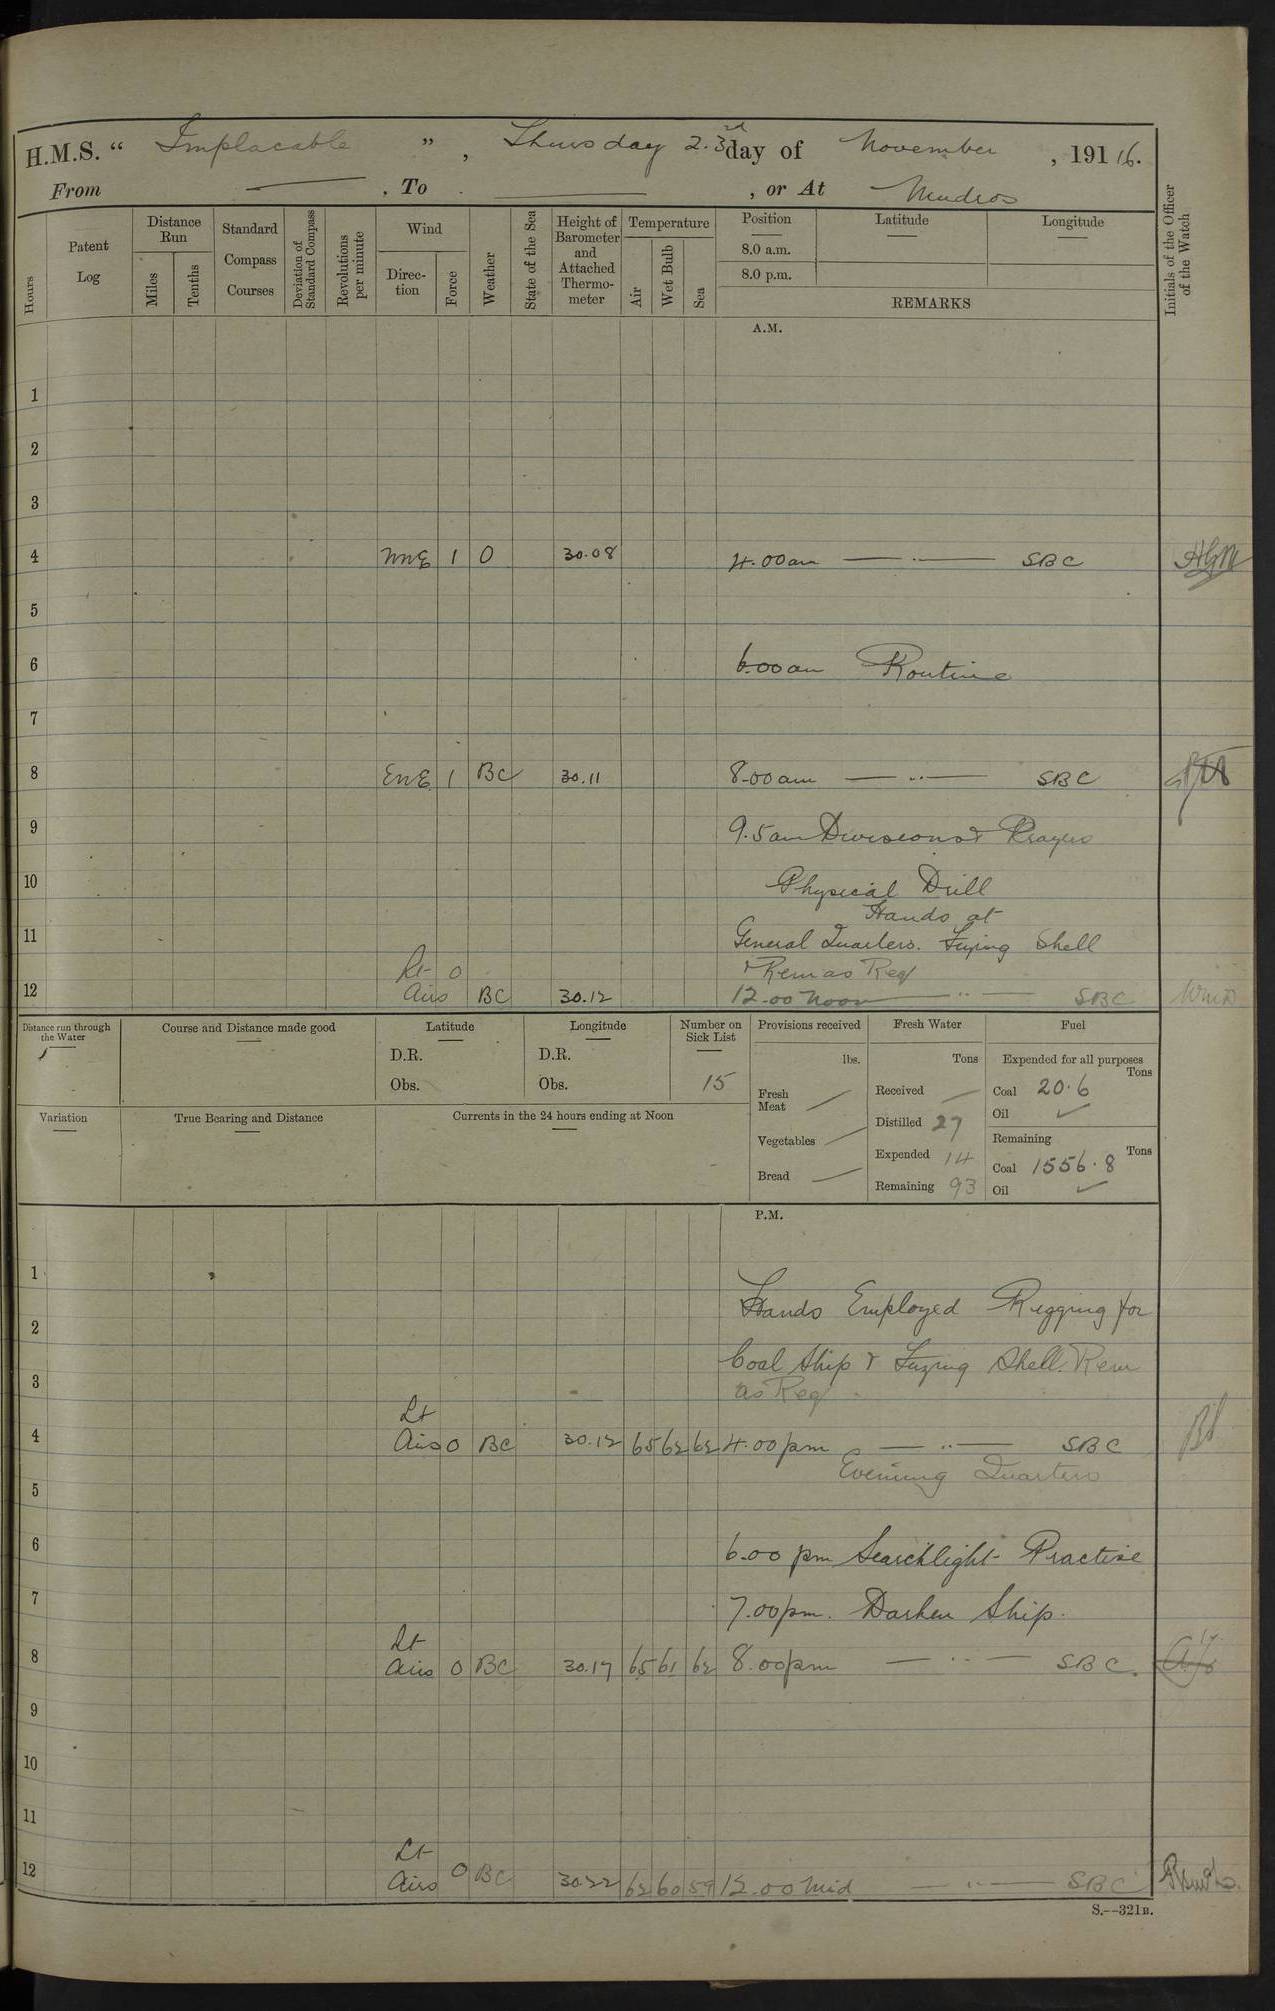 H.M.S. “ Implacable ” , Thursday 23rd day of November , 191 16.
From — , To — , or At Mudros
Hours
Patent Log
Distance Run
Miles
Tenths
Standard Compass Courses
Deviation of Standard Compass
Revolutions per minute
Wind
Direc-tion
Force
Weather
State of the Sea
Height of Barometer and Attached Thermo-meter
Temperature
Air
Wet Bulb
Sea
Position
8.0 a.m.
8.0 p.m.
Latitude
Longitude
REMARKS
Initials of the Officer of the Watch
A.M.
1
2
3
4 NNE 1 O 30.08 4.00am — · — SBC
5
6 6.00am Routine
7
8 ENE 1 BC 30.11 8.00am — ·· — SBC
9 9.5am Divisions & Prayers
10 Physical Drill
Hands at
11 General Quarters. Fuzing Shell
Lt 0 & Rem as Req
12 Airs BC 30.12 12.00 Noon — ·· — SBC
Distance run through the Water
Course and Distance made good
Latitude
D.R.
Obs.
Longitude
D.R.
Obs.
Number on Sick List
15
Provisions received
lbs.
Fresh Meat
Vegetables
Bread
Fresh Water
Tons
Received
Distilled 27
Expended 14
Remaining 93
Fuel
Expended for all purposes
Tons
Coal 20.6
Oil
Remaining
Tons
Coal 1556.8
Oil
Variation
True Bearing and Distance
Currents in the 24 hours ending at Noon
P.M.
1
Hands Employed Rigging for
2
Coal Ship & Fuzing Shell. Rem
3
as Req
Lt
4 Airs 0 BC 30.12 65 62 62 4.00pm — ·· — SBC
Evening Quarters
5
6 6.00 pm Searchlight Practise
7 7.00pm. Darken Ship.
Lt
8 Airs 0 BC 30.17 65 61 62 8.00pm — ·· — SBC.
9
10
11
Lt
12 Airs 0 BC 30.22 62 60 59 12.00 Mid — ·· — SBC
S.—321B.